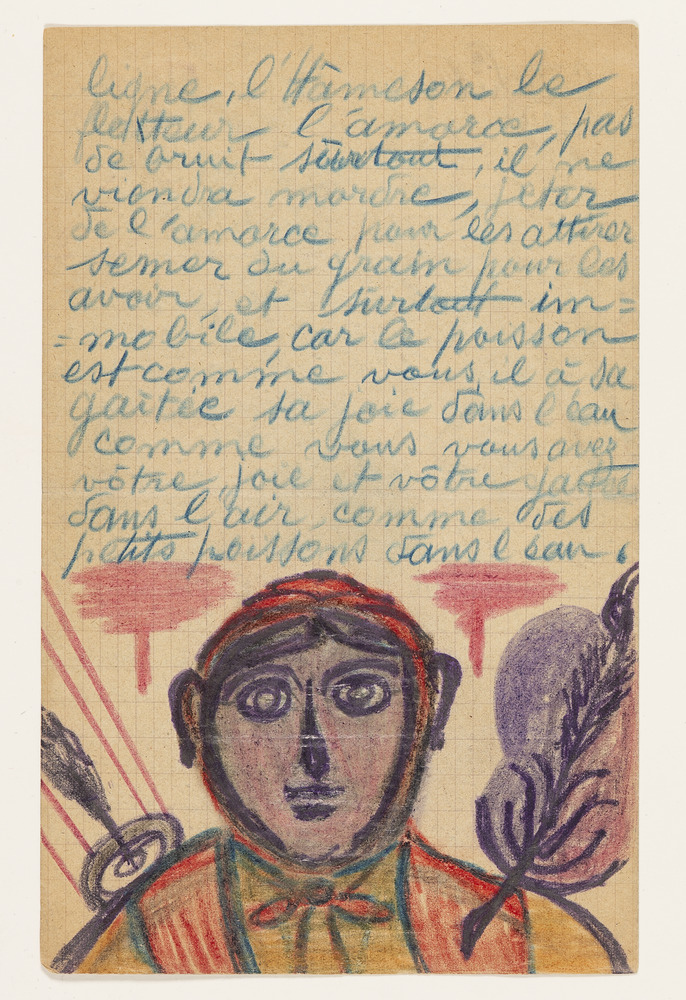 ligne, l'Hameson le
flotteur l'amorce, pas
de bruit surtout, il ne
viendra mordre, jeter
de l'amorce pour les attirer
semer du grain pour les
avoir, et surtout im=
=mobile, car le poisson
est comme vous, il à sa
gaîtée sa joie dans l'eau
comme vous vous avez
vôtre joie et vôtre gaitée
dans l'air, comme des
petits poissons dans l'eau.